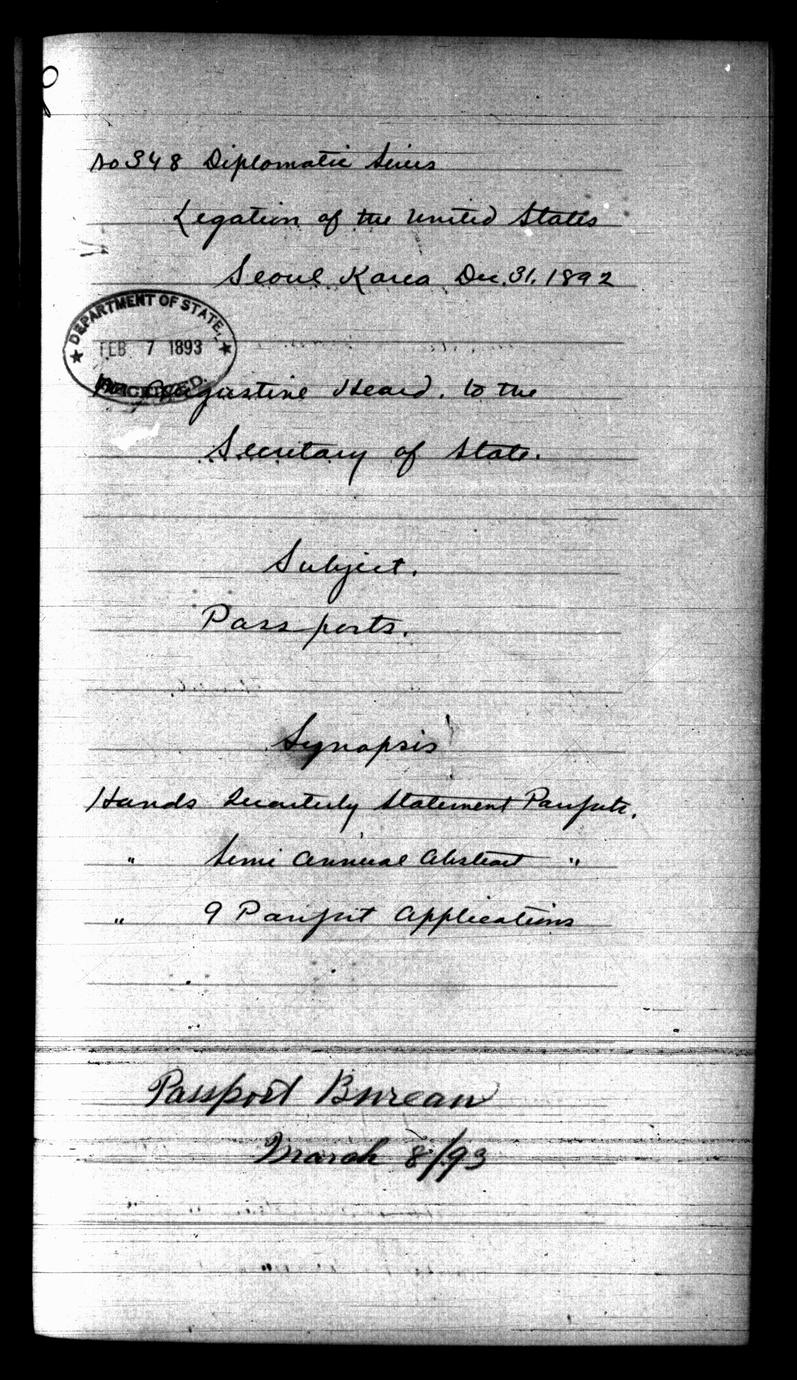 No 348 Diplomatic Series
Legation of the United States
Seoul Korea Dec. 31. 1892
DEPARTMENT OF STATE,
FEB 7 1893
RECEIVED.
Mr Augustine Heard. to the
Secretary of State.
Subject.
Passports.
Synopsis
Hands Quarterly Statement Passports.
" Semi Annual Abstract "
" 9 Passport Applications
Passport Bureau
March 8/93